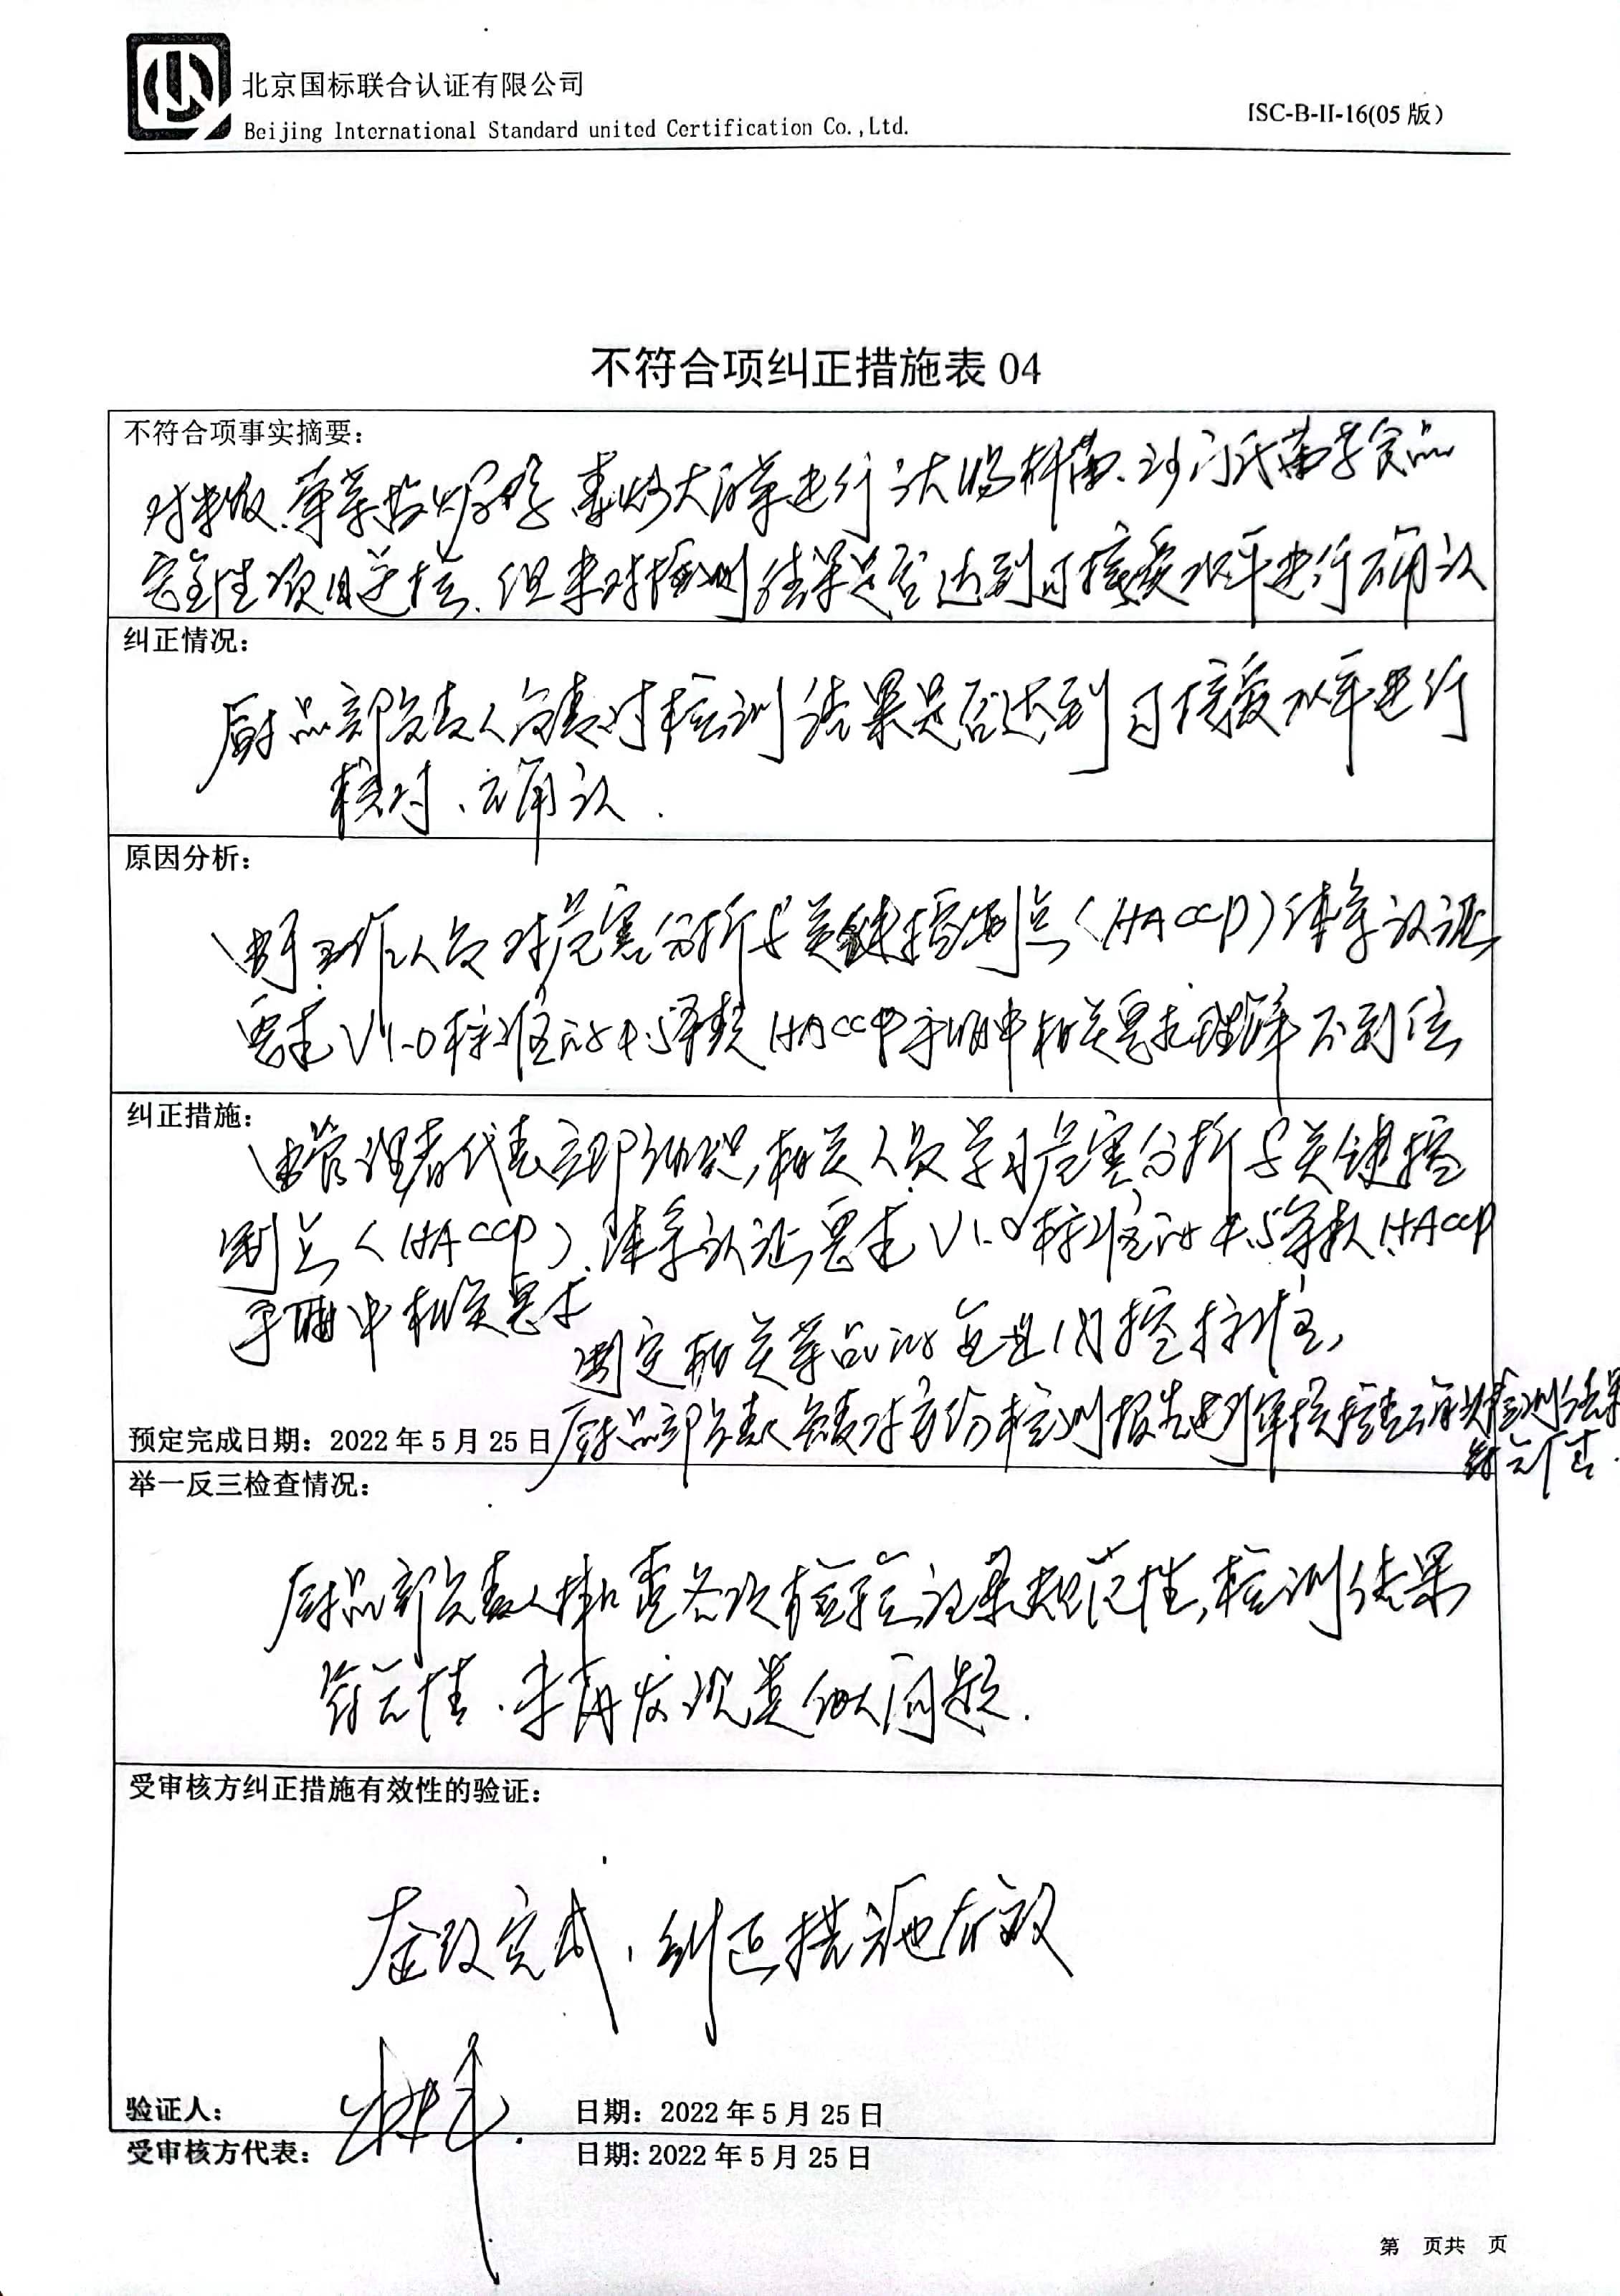 北京国标联合认证有限公司
Beijing International Standard united Certification Co.,Ltd.
ISC-B-II-16(05 版)
不符合项纠正措施表 04
不符合项事实摘要:
对米饭、荤菜 素炒大 菜进行 大肠杆菌、沙门氏菌等食品
安全性项目送检、但未对检测结果是否达到可接受水平进行确认
纠正情况:
厨品部负责人负责对检测结果是否达到可接受水平进行
核对、确认.
原因分析:
由于工作人员对危害分析与关键控制点(HACCP)体系认证
要求V1.0标准的4.5条款 HACCP手册中相关要求理解不到位
纠正措施:
由管理者代表立即组织相关人员学习危害分析与关键控
制点(HACCP)体系认证要求V1.0标准的4.5条款HACCP
手册中相关要求
制定相关菜品的 企业内控标准,
厨品部负责人负责对 检测报告进行审核 确认检测结果
预定完成日期: 2022 年 5 月 25 日
符合性.
举一反三检查情况:
厨品部负责人排查各次 检验记录规范性,检测结果
符合性.未再发现类似问题.
受审核方纠正措施有效性的验证:
整改完成,纠正措施有效
验证人:
日期: 2022 年 5 月 25 日
受审核方代表:
日期: 2022 年 5 月 25 日
第 页共 页